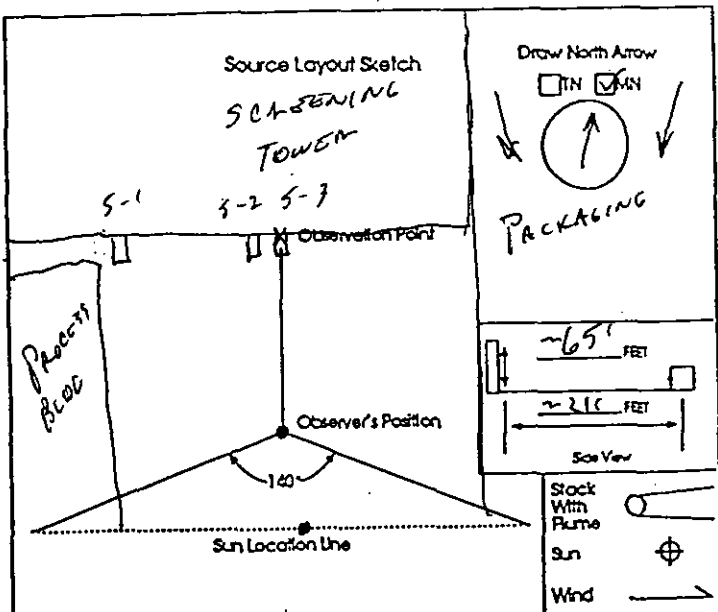 Source Layout Sketch
SCREENING
TOWER
S-1
S-2 S-3
Observation Point
PROCESS
BLDG
Observer's Position
140
Sun Location Line
Draw North Arrow
TN MN
PACKAGING
~65' FEET
FEET
Side View
Stack
With
Plume
Sun
Wind